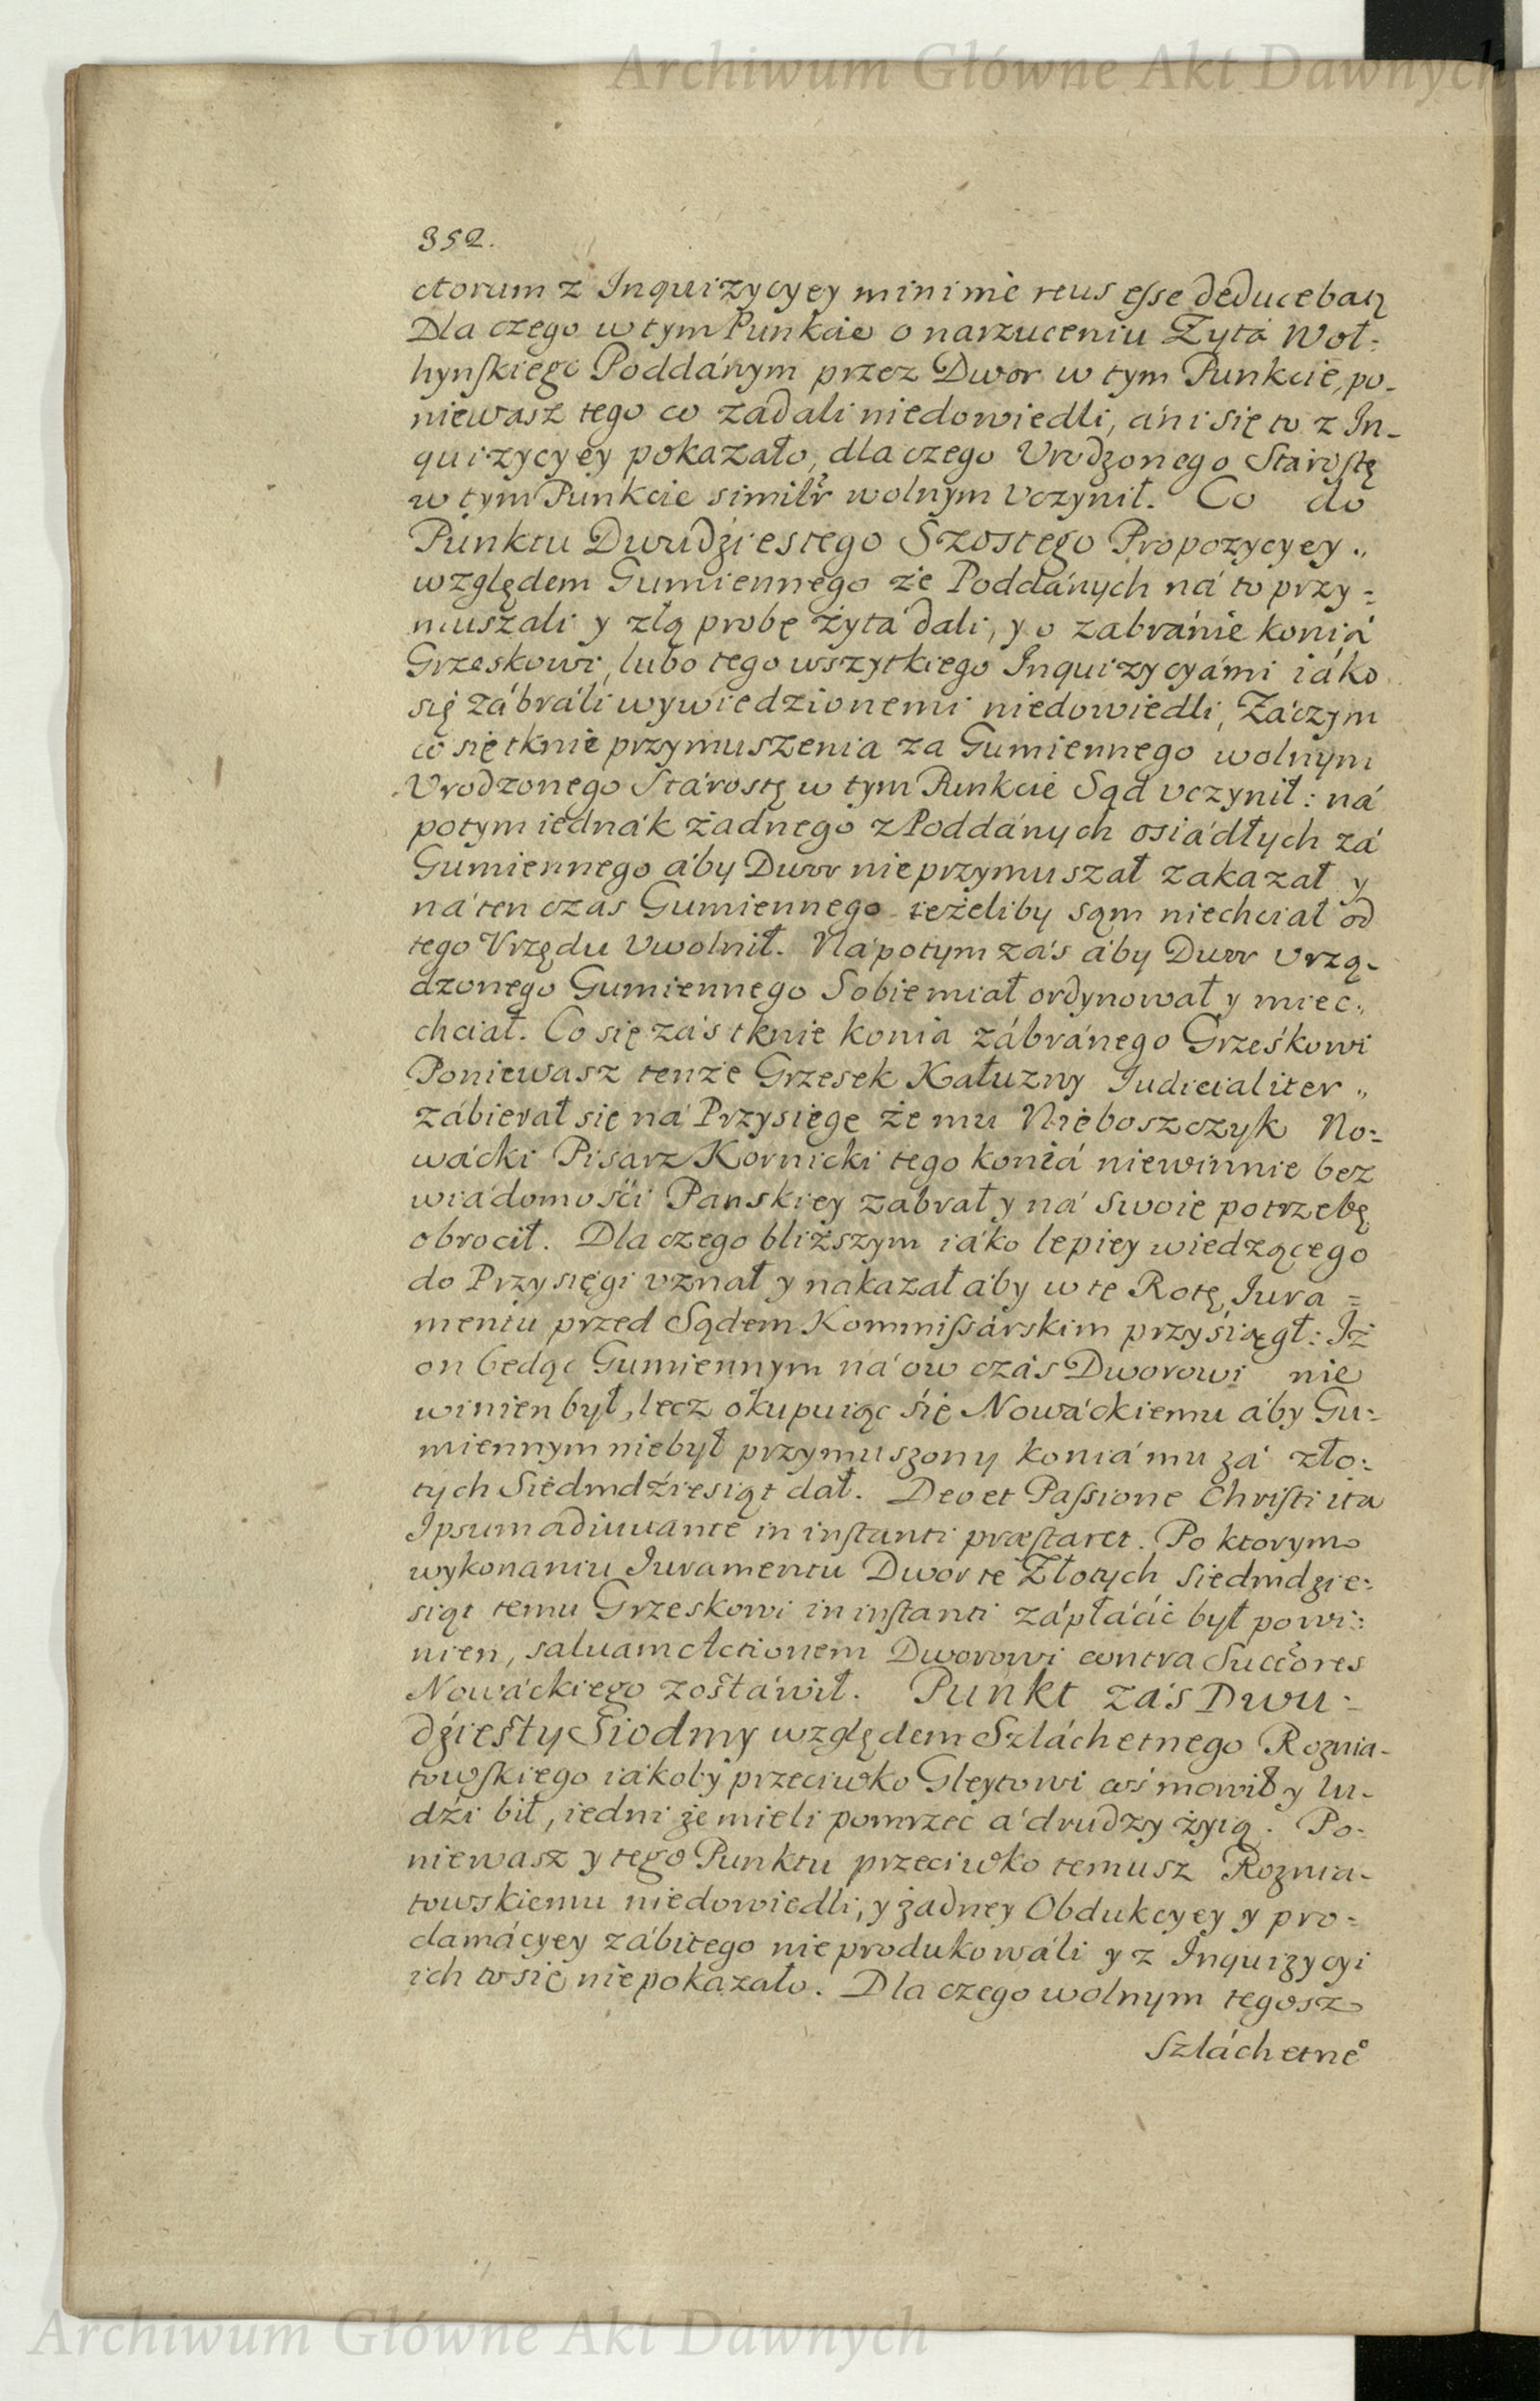 Archiwum Główne Akt Dawnych
352.
ctorum z Inquizycyey minime reus eſse deducebatz
Dla czego w tym Punkcie o narzuceniu Zytá Woł=
hynſkiego Poddánym przez Dwor w tym Punkcie, po-
niewasz tego co zadali niedowiedli, áni się to z In-
quizycyey pokazało, dla czego Vrodzonego Staroſtę
w tym Punkcie similr wolnym Vczynił. Co do
Punktu Dwudziestego Szostego Propozycyey „
względem Gumiennego że Poddánych ná to przy=
muszali y złą probę żytá dali, y o zabránie koniá
Grzeskowi, lubo tego wszytkiego Inquizycyámi iáko
się zábráli wywiedzionemi niedowiedli, Záczym
co się tknie przymuszenia za Gumiennego wolnym
Vrodzonego Stárostę w tym Punkcie Sąd vczynił: ná
potym iednák żadnego z Poddánych osiádłych zá
Gumiennego áby Dwor nie przymuszał zakazał y
ná ten czas Gumiennego ieżeliby sąm niechciał od
tego Vrzędu Vwolnił. Nápotym zás áby Dwor Vrzą-
dzonego Gumiennego Sobie miał ordynował y miec „
chciał. Co się zás tknie konia zábránego Grześkowi
Poniewasz tenże Grzesek Kałuzny Iudicialiter „
zábierał się ná Przysięgę że mu Nieboszczyk No=
wácki Pisarz Kornicki tego koniá niewinnie bez
wiádomośći Panskiey zabrał y ná swoie potrzebę
obrocił. Dla czego bliższym iáko lepiey wiedzącego
do Przysięgi vznał y nakazał áby w tę Rotę Iura =
mentu przed Sądem Kommiſsárskim przyśiągł: Iż
on będąc Gumiennym ná ow czás Dworowi nie
winien był, lecz okupuiąc śię Nowáckiemu áby Gu=
miennym niebył przymuszony koniá mu zá zło=
tych Siedmdźiesiąt dał. Deo et Paſsione Chriſti ita
Ipsum adiuuante in inſtanti præſtaret. Po ktorym
wykonaniu Iuramentu Dwor te Złotych Siedmdzie=
siąt temu Grzeskowi in inſtanti zápłáćić był powi=
nien, saluam Actionem Dworowi contra Succores
Nowáckiego zostáwił. Punkt zás Dwu=
dźiesty Siodmy względem Szláchetnego Roznia-
towſkiego iákoby przeciwko Gleytowi coś mowił y lu-
dźi bił, iedni że mieli pomrzec á drudzy żyią. Po-
niewasz y tego Punktu przeciwko temusz Roznia-
towskiemu niedowiedli, y żadney Obdukcyey y pro=
clamácyey zábitego nie produkowáli y z Inquizycyi
ich to się niepokazało. Dla czego wolnym tegosz
Szláchetneo
Archiwum Główne Akt Dawnych